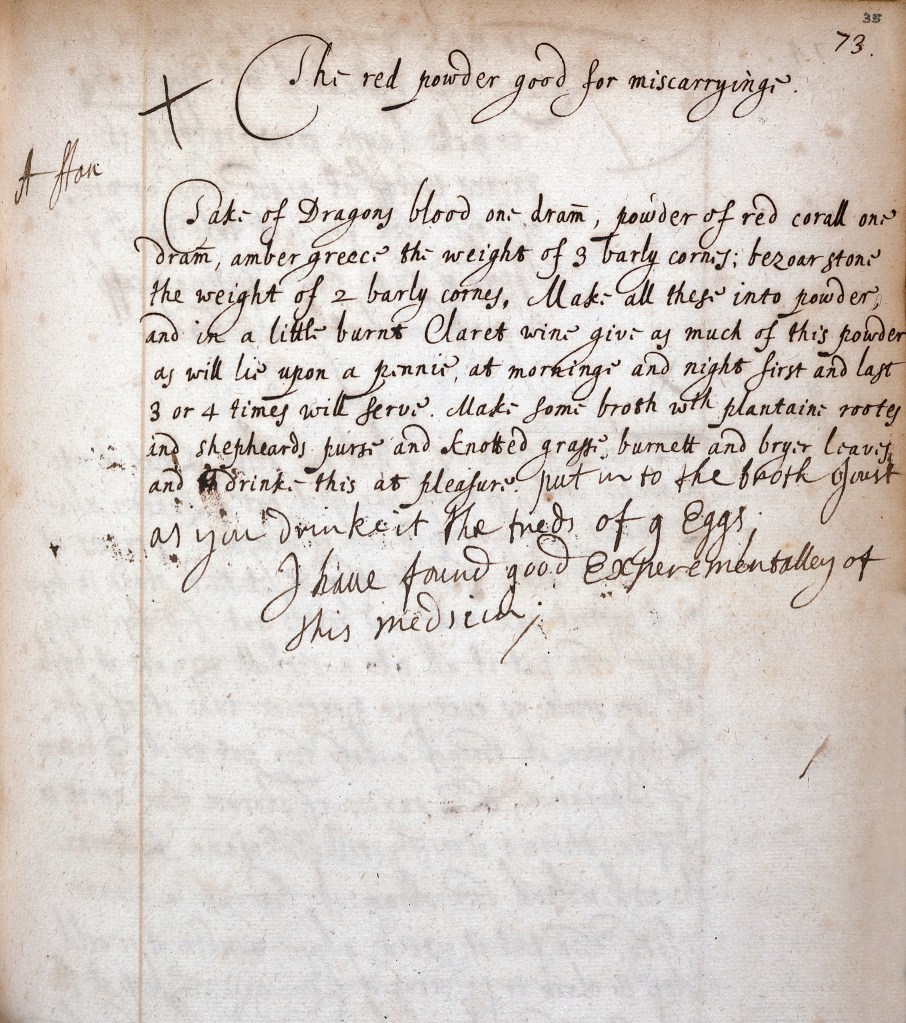 35
73.
The red powder good for miscarryinge.
Take of Dragons blood one dram̄, powder of red corall one
dram̄, amber greece the weight of 3 barly cornes; bezoar stone
the weight of 2 barly cornes. Make all these into powder,
and in a little burnt Claret wine give as much of this powder
as will lie upon a pennie, at morninge and night first and last
3 or 4 times will serve. Make some broth wth plantaine rootes
and shepheards purse and knotted grasse, burnett and bryer leaves,
and drinke this at pleasure. put in to the broth Joust
as you drinke it the treds of 9 Eggs,
I have found good Experementalley of
this medsicin;